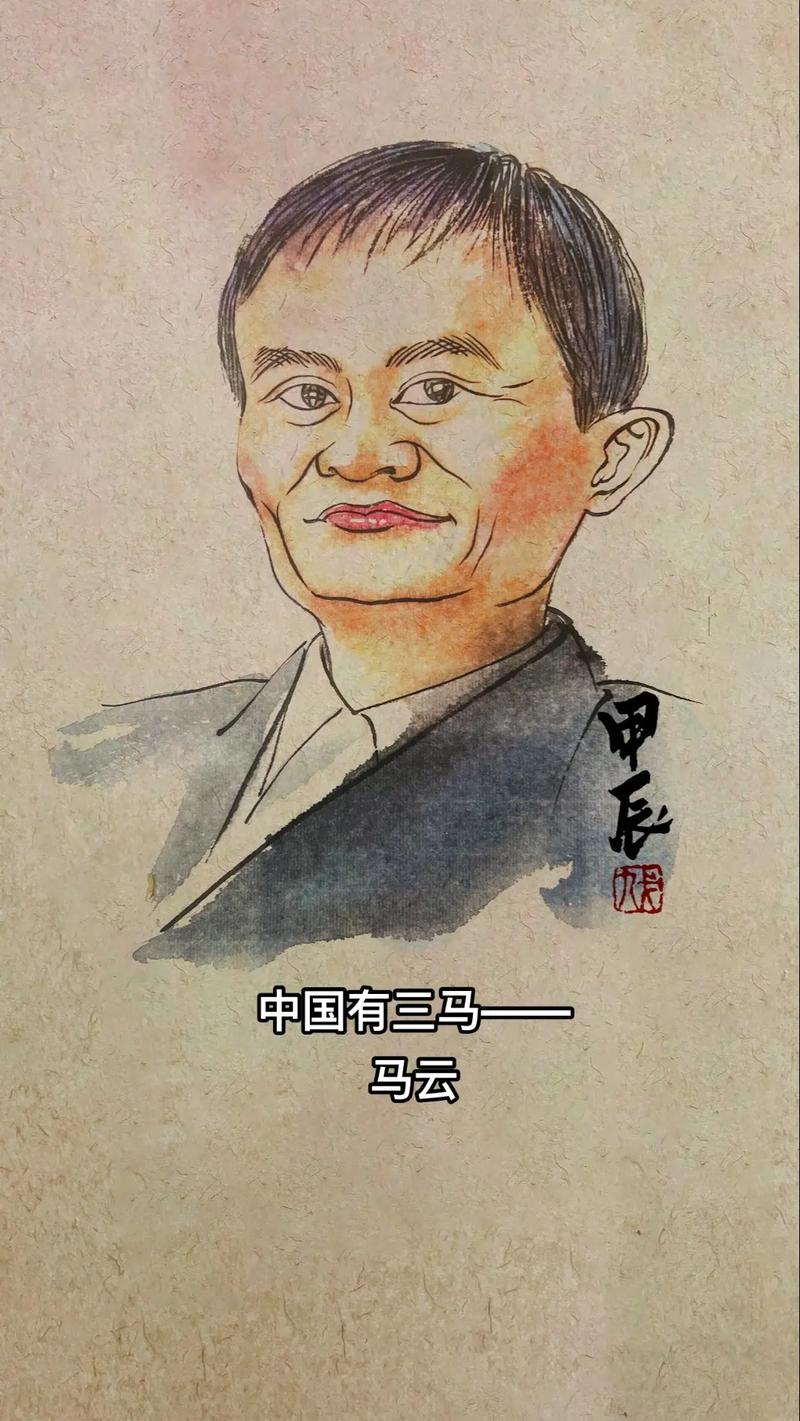 甲辰
中国有三马——
马云